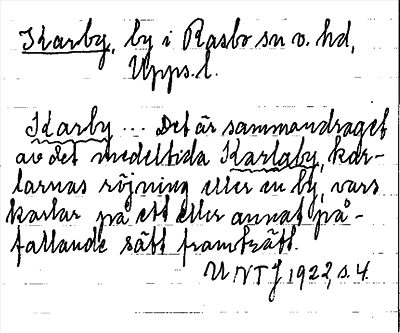 Karby, by i Rasbo sn o. hd,
Upps. l.
Karby ... Det är sammandraget
av det medeltida Karlaby, kar-
larnas röjning eller en by, vars
karlar på ett eller annat på-
fallande sätt framträtt.
UNT f 1922, s. 4.